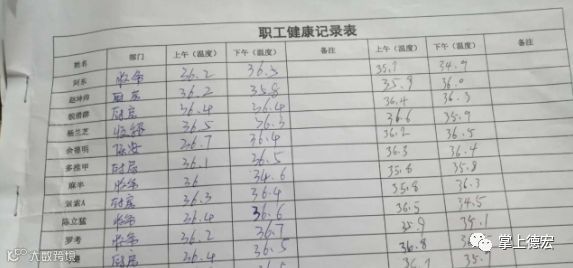 职工健康记录表
姓名 部门 上午（温度） 下午（温度） 备注 上午（温度） 下午（温度） 备注
阿东 收银 36.2 36.5 35.9 34.9
赵坤舟 厨房 36.2 35.8 35.9 36.0
厨房 36.4 36.4 36.4 36.3
杨兰芝 收银 36.5 36.3 36.6 35.9
余德明 保安 36.7 36.4 36.2 36.5
多推甲 厨房 36.1 36.5 36.3 36.4
麻半 收银 36 34.6 35.6 35.8
A 厨房 36.3 36.4 35.8 36.3
陈立猛 收银 36.4 36.6 36.5 34.5
罗考 收银 36.2 36.7 35.9 35.1
厨房 36.4 36.5 36.8
35.7
大数跨境
掌上德宏